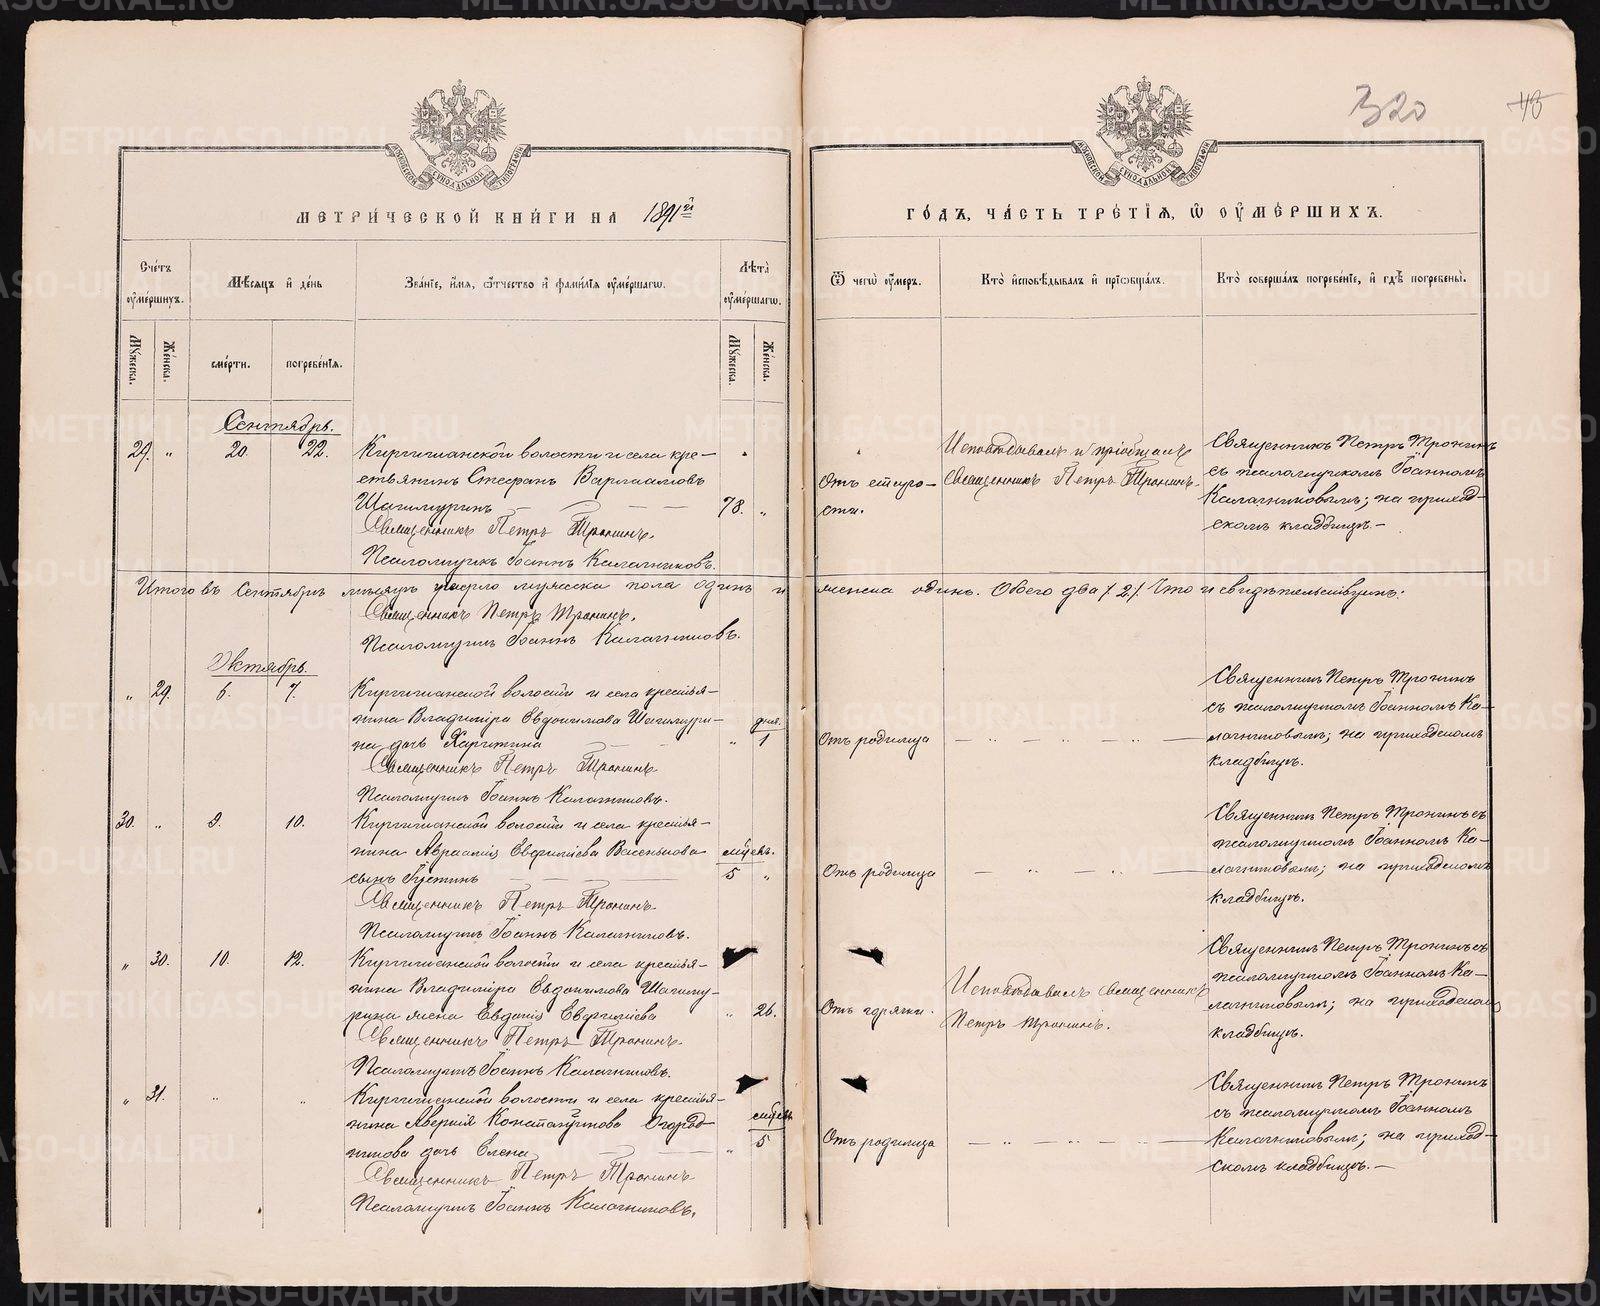 320
43
МЕТРИ́ЧЕСКОЙ КНИ́ГИ НА 1891й
ГО́ДЪ, ЧА́СТЬ ТРЕ́ТІЯ, Ѡ ОУМЕ́РШИХЪ.
Сче́тъ оуме́ршихъ.
Мѣ́сяцъ и де́нь
Зва́ніе, и́мя, ѻ́тчество и фами́лія оуме́ршагѡ.
Лѣта̀ оуме́ршагѡ.
Ѿ чегѡ̀ оу́меръ.
Кто̀ исповѣ́дывалъ и пріѡбща́лъ.
Кто̀ соверша́лъ погребе́ніе, и гдѣ̀ погребены̀.
Мꙋжеска.
Же́нска.
сме́рти.
погребе́нія.
Мꙋжеска.
Же́нска.
Сентябрь.
29. " 20. 22. Киргишанской волости и села кре-
стьянинъ Стефанъ Варлаамовъ
Шагимуринъ 78. "
Священникъ Петръ Тронинъ.
Псаломщикъ Іоаннъ Калачниковъ.
Отъ старо-
сти.
Исповѣдывалъ и пріобщалъ
Священникъ Петръ Тронинъ.
Священникъ Петръ Тронинъ
съ псаломщикомъ Іоанномъ
Калачниковымъ; на приход-
скомъ кладбищѣ.-
Итого въ Сентябрѣ мѣсяцѣ умерло мужеска пола одинъ и женска одинъ. Обоего два /2/. Что и свидѣтельствуемъ:
Священникъ Петръ Тронинъ.
Псаломщикъ Іоаннъ Калачниковъ.
Октябрь.
" 29. 6. 7. Киргишанской волости и села крестья-
нина Владиміра Евдокимова Шагимури-
на дочь Харитина " дней. 1
Священникъ Петръ Тронинъ
Псаломщикъ Іоаннъ Калачниковъ.
Отъ родимца
Священникъ Петръ Тронинъ
съ псаломщикомъ Іоанномъ Ка-
лачниковымъ; на приходскомъ
кладбищѣ.
30. " 9. 10. Киргишанской волости и села крестья-
нина Авраамія Евфиміева Васенькова
сынъ Іустинъ мѣсяц. 5 "
Священникъ Петръ Тронинъ.
Псаломщикъ Іоаннъ Калачниковъ.
Отъ родимца
Священникъ Петръ Тронинъ съ
псаломщикомъ Іоанномъ Ка-
лачниковымъ; на приходскомъ
кладбищѣ.
" 30. 10. 12. Киргишанской волости и села крестья-
нина Владиміра Евдокимова Шагиму-
рина жена Евдокія Евфиміева " 26.
Священникъ Петръ Тронинъ.
Псаломщикъ Іоаннъ Калачниковъ.
Отъ горячки.
Исповѣдывалъ священникъ
Петръ Тронинъ.
Священникъ Петръ Тронинъ съ
псаломщикомъ Іоанномъ Ка-
лачниковымъ; на приходскомъ
кладбищѣ.
" 31. " " Киргишанской волости и села крестья-
нина Аверкія Константинова Огород-
никова дочь Елена " 5
Священникъ Петръ Тронинъ
Псаломщикъ Іоаннъ Калачниковъ.
Отъ родимца
Священникъ Петръ Тронинъ
съ псаломщикомъ Іоанномъ
Калачниковымъ; на приход-
скомъ кладбищѣ.-
METRIKI.GASO-URAL.RU